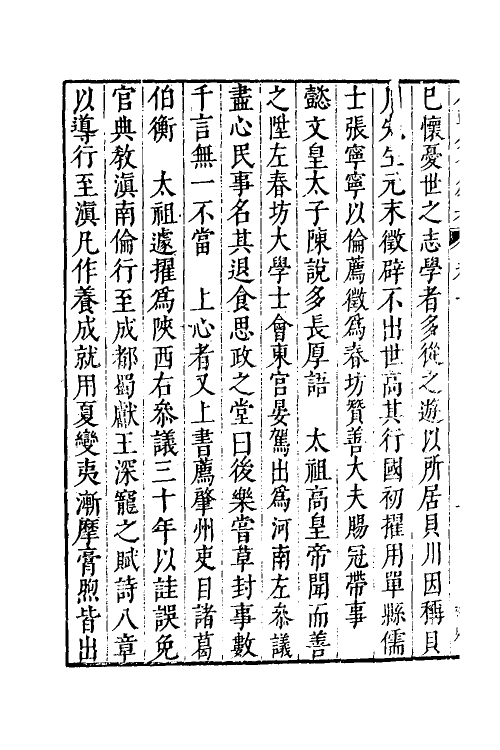 已懷憂世之志學者多從之遊以所居貝川因稱貝
川先生元末徵辟不出世高其行國初擢用單縣儒
士張寧寧以倫薦徵爲春坊贊善大夫賜冠帶事
懿文皇太子陳說多長厚語　太祖高皇帝聞而善
之陞左春坊大學士會東宮晏駕出爲河南左叅議
盡心民事名其退食思政之堂曰後樂嘗草封事數
千言無一不當　上心者又上書薦肇州吏目諸葛
伯衡　太祖遽擢爲陝西右叅議三十年以詿誤免
官典教滇南倫行至成都蜀獻王深寵之賦詩八章
以導行至滇凡作養成就用夏變夷漸摩膏煦皆出